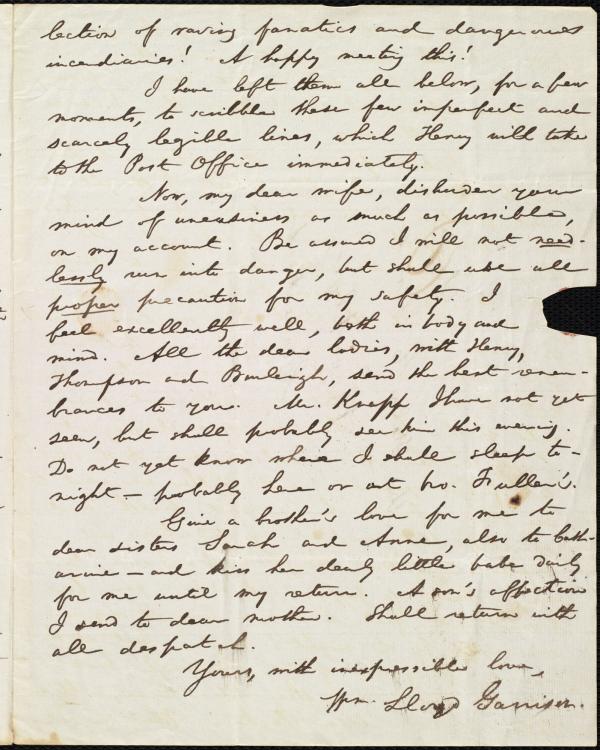 lection of raving fanatics and dangerous
incendiaries! A happy meeting this!
I have left them all below, for a few
moments, to scribble these few imperfect and
scarcely legible lines, which Henry will take
to the Post Office immediately.
Now, my dear wife, disburden your
mind of uneasiness as much as possible,
on my account. Be assured I will not need-
lessly run into danger, but shall use all
proper precaution for my safety. I
feel excellently well, both in body and
mind. All the dear ladies, with Henry,
Thompson and Burleigh, send the best remem-
brances to you. Mr. Knapp I have not yet
seen, but shall probably see him this evening.
Do not yet know where I shall sleep to-
night — probably here or at bro. Fuller's.
Give a brother's love for me to
dear sisters Sarah and Anne, also to Cath-
arine — and kiss her dear little babe daily
for me until my return. A son's affection
I send to dear mother. Shall return with
all despatch.
Yours, with inexpressible love,
Wm. Lloyd Garrison.